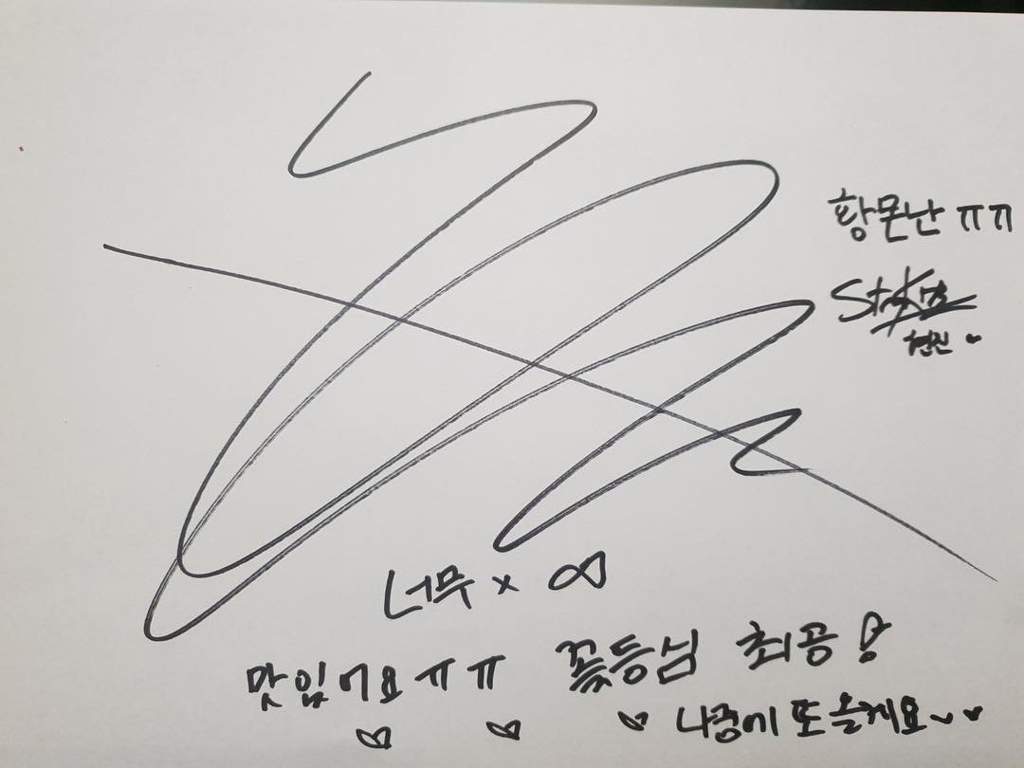 황문난 ㅠㅠ
StrayKids
현진
너무 × ∞
맛있어요 ㅠㅠ 꽃등심 최공!
나중에 또 올게요~